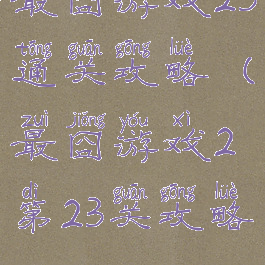 最囧游戏23
tōng guān gōng lüè
通关攻略(
zuì jiǒng yóu xì
最囧游戏2
dì guān gōng lüè
第23关攻略